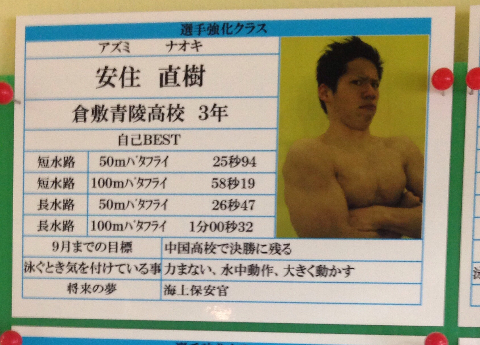 選手強化クラス
アズミ ナオキ
安住 直樹
倉敷青陵高校 3年
自己BEST
短水路 50mバタフライ 25秒94
短水路 100mバタフライ 58秒19
長水路 50mバタフライ 26秒47
長水路 100mバタフライ 1分00秒32
9月までの目標 中国高校で決勝に残る
泳ぐとき気を付けている事 力まない、水中動作、大きく動かす
将来の夢 海上保安官
選手強化クラス